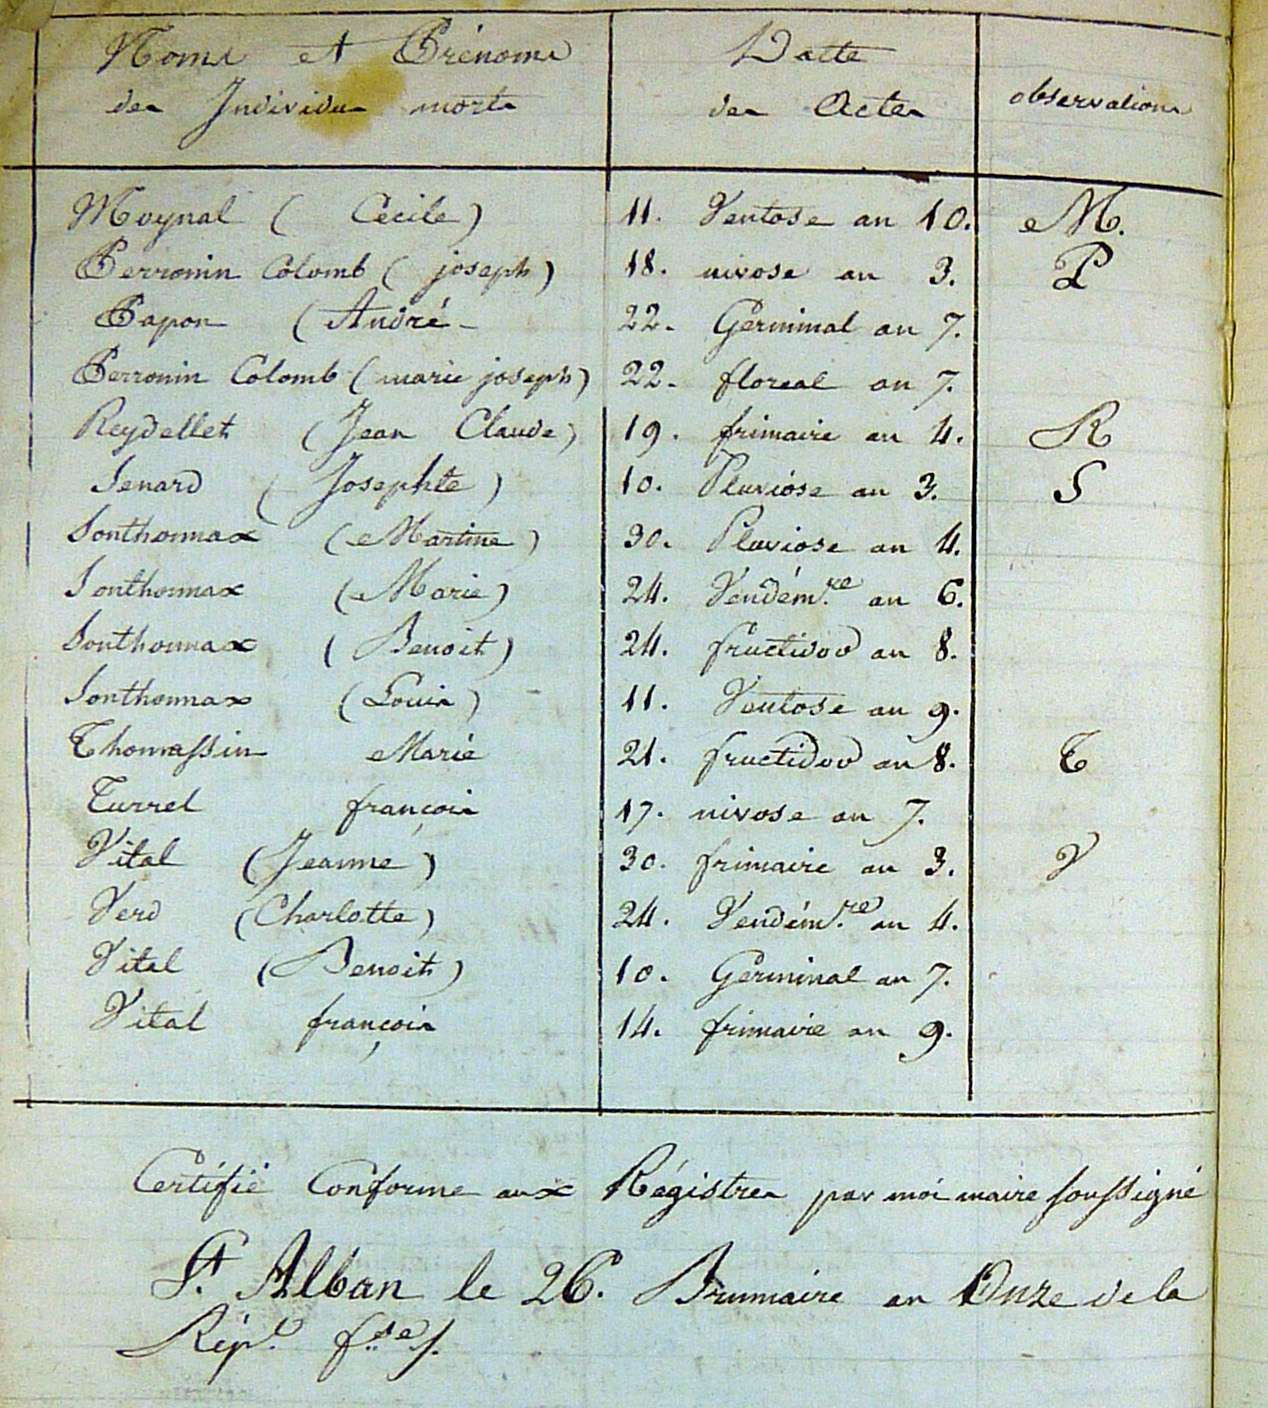 Noms et Prénoms Datte
des Individus morts des Actes observations
Moynal ( Cécile ) 11. Ventose an 10. M.
Perronin Colomb ( joseph ) 18. nivose an 3. P
Papon ( André - 22. Germinal an 7.
Perronin Colomb ( marie joseph ) 22. floréal an 7.
Reydellet ( Jean Claude ) 19. frimaire an 4. R
Senard ( Josephte ) 10. Pluviose an 3. S
Sonthonnax ( Martine ) 30. Pluviose an 4.
Sonthonnax ( Marie ) 24. Vendém.re an 6.
Sonthonnax ( Benoit ) 24. fructidor an 8.
Sonthonnax ( Louis ) 11. Ventose an 9.
Thomassin Marie 21. fructidor an 8. T
Turrel françois 17. nivose an 7.
Vital ( Jeanne ) 30. frimaire an 3. V
Verd ( Charlotte ) 24. Vendém.re an 4.
Vital ( Benoit ) 10. Germinal an 7.
Vital françois 14. frimaire an 9.
Certifié Conforme aux Régistres par moi maire soussigné
St. Alban le 26. Brumaire an Onze de la
Répe. f.se ./.